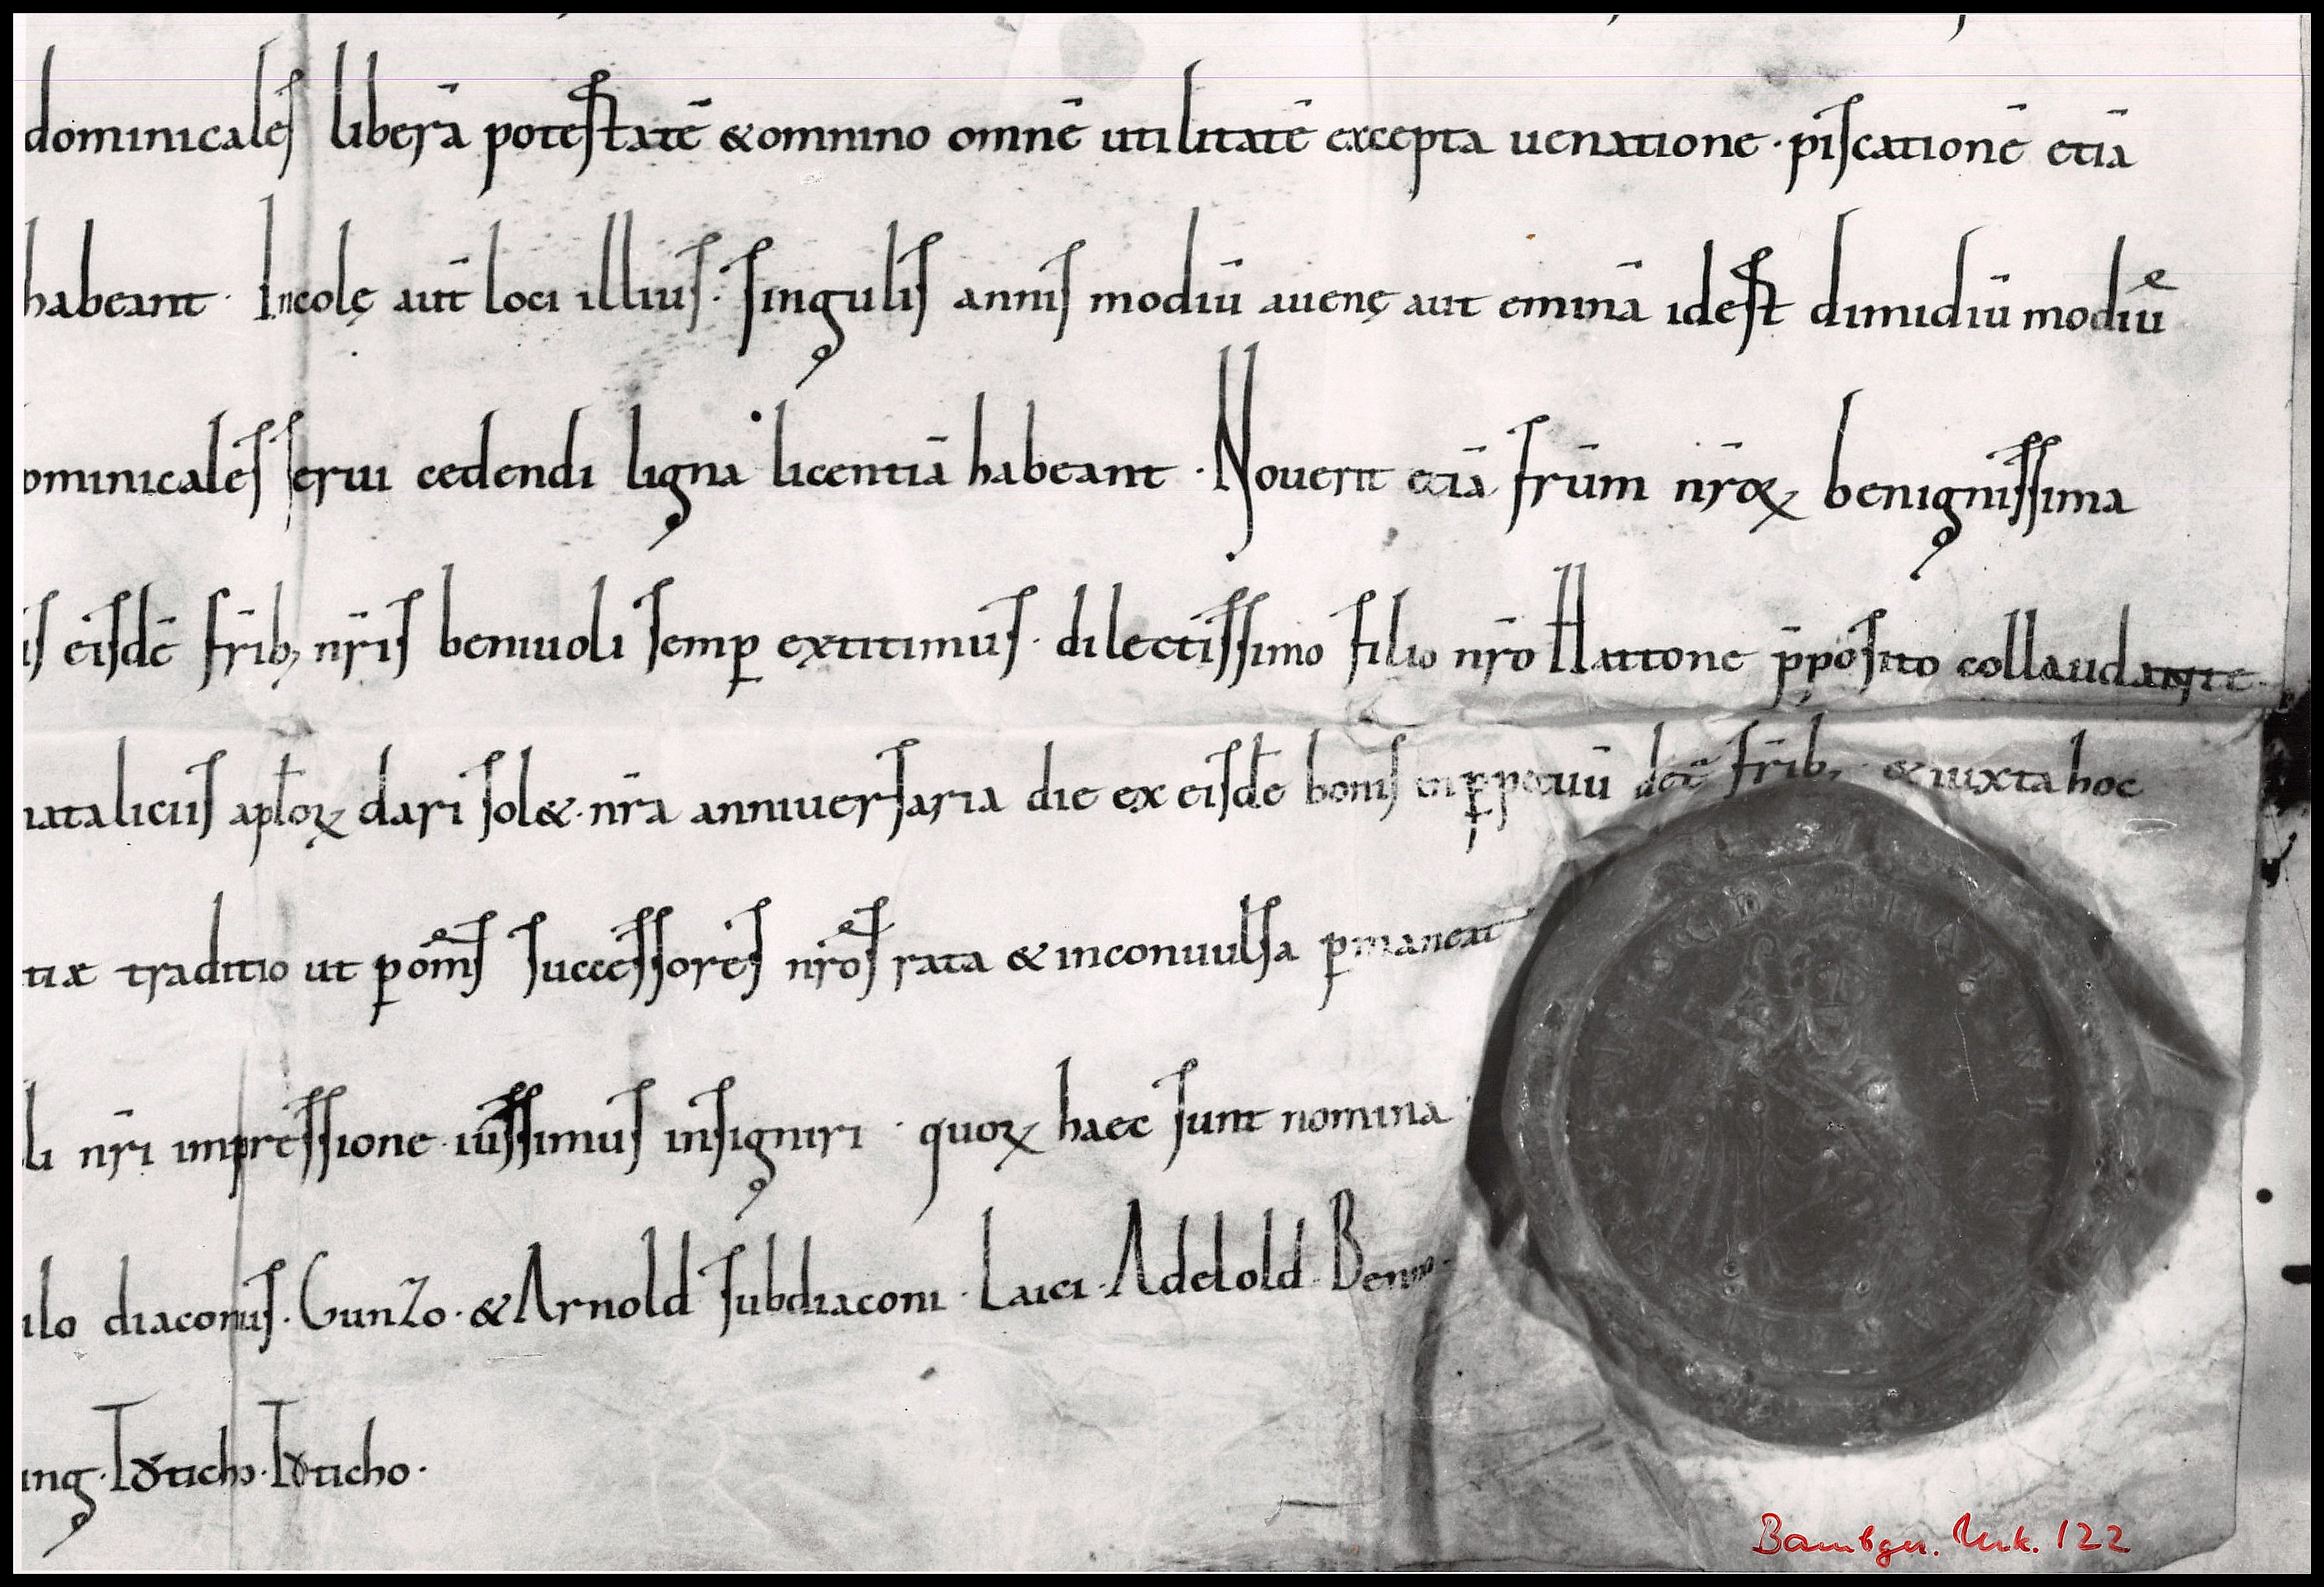 dominicaleſ liberā poteſtatē &omnino omnē utilitatē excepta uenatione · piſcationē etiā
habeant · Incolę aut̄ loci illiuſ · ſinguliſ anniſ modiū auenę aut eminā ideſt dimidiū modiū
ominicaleſ ſerui cedendi ligna licentiā habeant · Nouerit etiā fr̄um nr̄oꝝ benigniſſima
iſ eiſdē fr̄ibꝫ nr̄iſ beniuoli ſemꝑ extitimuſ · dilectiſſimo filio nr̄o Hattone p̄poſito collaudante
natalicuſ apl̄oꝝ dari ſol& · nr̄a anniuerſaria die ex eiſdē boniſ in ꝑpetuū fr̄ibꝫ · &iuxta hoc
tiæ traditio ut ꝑ om̄ſ ſucceſſoreſ nr̄oſ rata &inconuulſa ꝑmaneat
li nr̄i impreſſione iuſſimuſ inſigniri · quoꝝ haec ſunt nomina
ilo diaconuſ · Gunzo · &Arnold ſubdiaconi · Laici · Adelold · Benno ·
ing · Tꝍticho · Tꝍticho ·
Bambger. Urk. 122